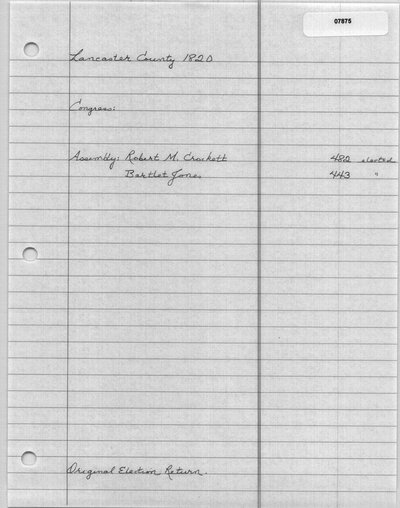 07875
Lancaster County 1820
Congress:
Assembly: Robert M. Crockett 482 elected
Bartlet Jones 443 "
Original Election Return.